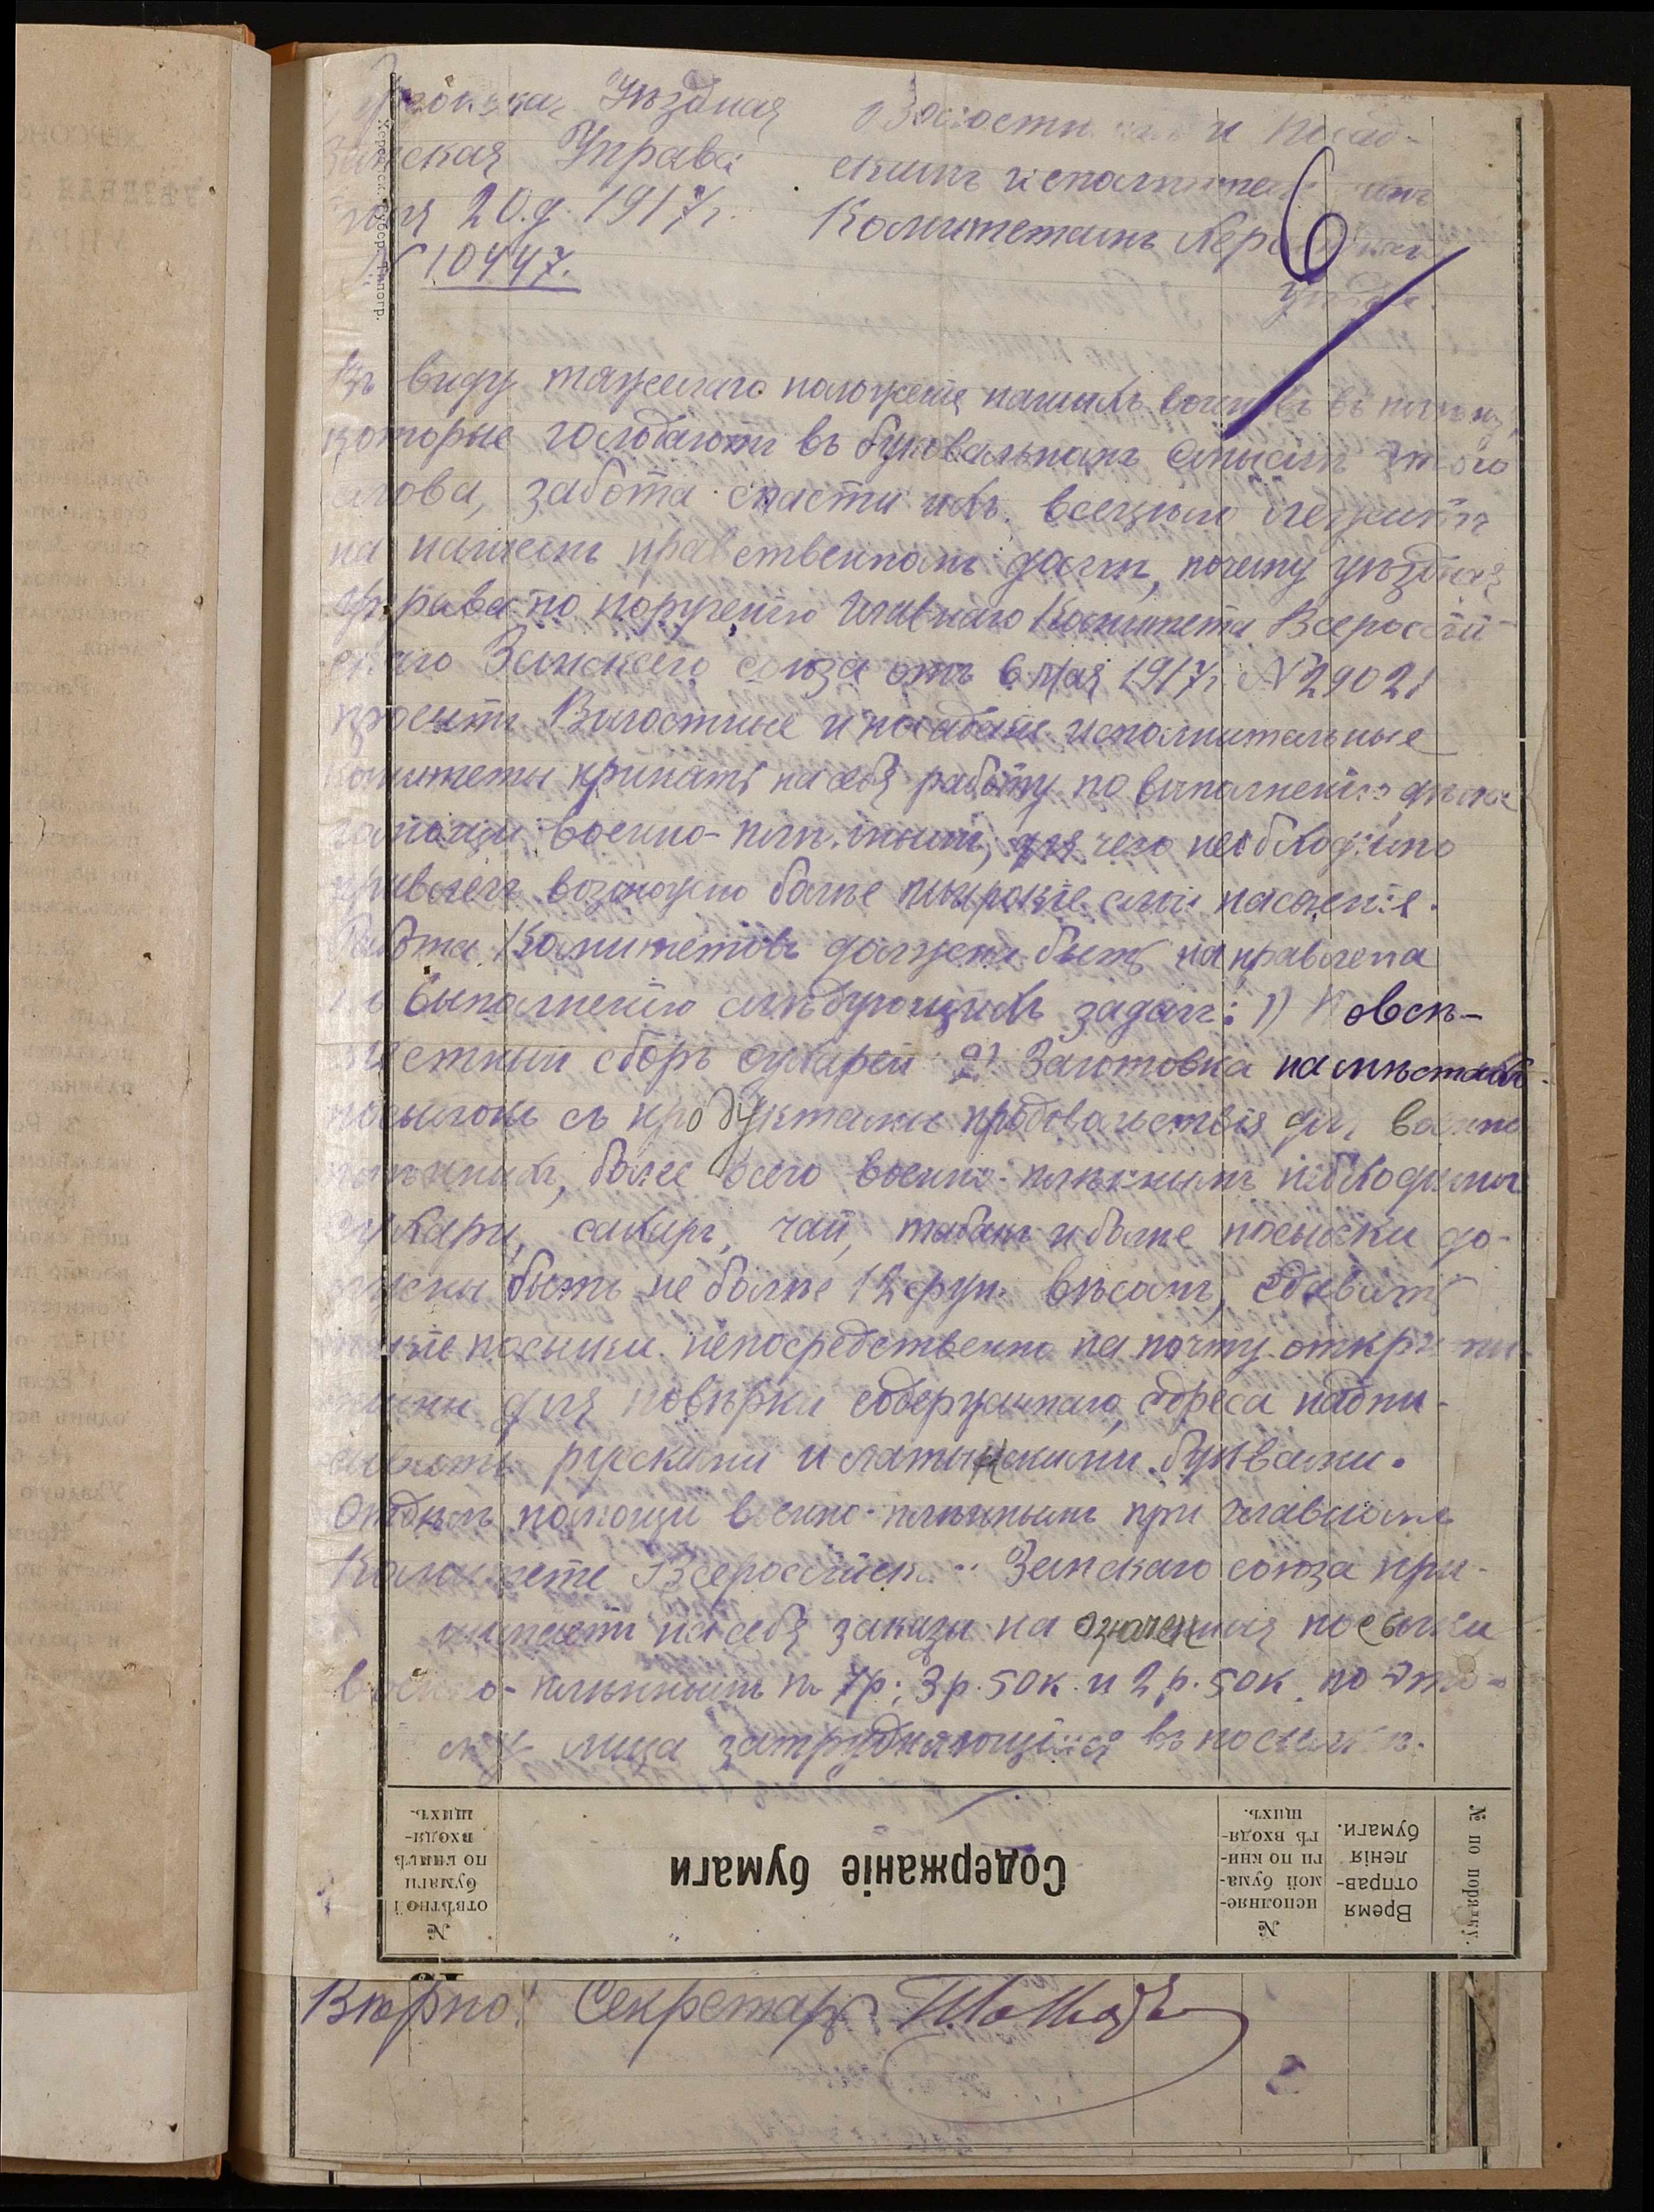 Уѣздная
Управа
20 д. 1917 г.
№ 10447.
Волостнымъ и посад-
скимъ исполнительнымъ
Комитетамъ Херсонскаго
уѣзда.
6
Въ виду тяжелаго положенія нашихъ воиновъ въ плѣну,
которые голодаютъ въ буквальномъ смыслѣ этого
слова, забота спасти ихъ всецѣло лежитъ
на нашемъ нравственномъ долгѣ, почему уѣздная
управа по порученію Главнаго Комитета Всероссій-
скаго Земскаго союза отъ 6 мая 1917 г. № 29021
проситъ Волостные и посадскіе исполнительные
комитеты принять на себя работу по выполненію дѣла
помощи военно-плѣннымъ, для чего необходимо
привлечь возможно болѣе широкіе слои населенія.
Работа Комитетовъ должна быть направлена
къ выполненію слѣдующихъ задач: 1) Повсѣ-
местный сборъ сухарей 2) Заготовка на мѣстахъ
посылокъ съ продуктами продовольствія для военно
плѣнныхъ, более всего военно-плѣннымъ необходимы
сухари, сахаръ, чай, табакъ и болѣе посылки до-
лжны быть не болѣе 12 фун. вѣсомъ, сдавать
такіе посылки непосредственно на почту открыты-
ми для повѣрки содержимаго, адреса надпи-
сывать русскими и латынскими буквами.
Отдѣлъ помощи военно-плѣннымъ при главномъ
Комитете Всероссійск. Земскаго союза при-
нимаетъ на себя заказы на означенныя посылки
военно-плѣннымъ по 7 р; 3 р. 50 к. и 2 р. 50 к. по это-
му лица затрудняющіися въ посылкѣ.
№ отвѣтной бумаги по книгѣ входящихъ.
Содержаніе бумаги
№ исполняемой бумаги по книгѣ входящихъ.
Время отправленія бумаги.
№ по порядку.
Херсонск. Губерн. Типогр.
Вѣрно: Секретарь